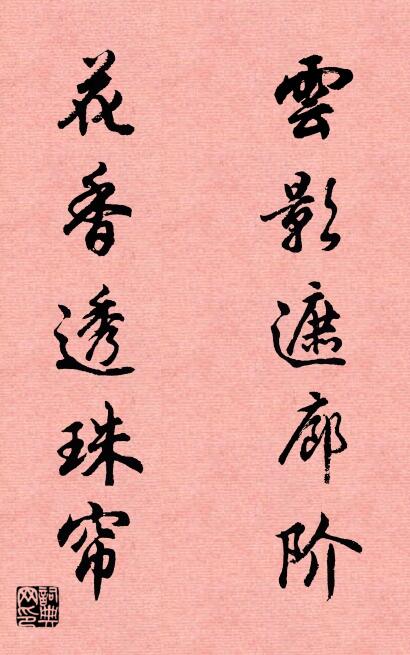 雲影遮廊阶
花香透珠帘
詞典
网印